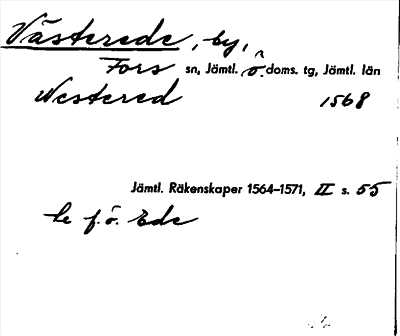 Västerede, by,
Fors sn, Jämtl. ö. doms. tg, Jämtl. län
Westered 1568
Jämtl. Räkenskaper 1564–1571, II s. 55
le f. ö. Ede